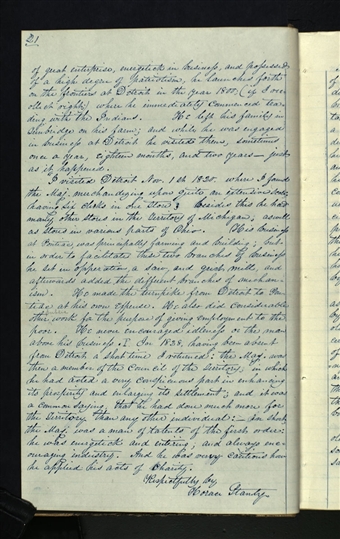 21
of great enterprise, energetick in business, and possessed
of a high degree of patriotism, he launched forth
on the frontiers at Detroit in the year 1800, (if I rec-
ollect right) where he immediately commenced tra-
ding with the Indians. He left his family in
Tunbridge on his farm; and while he was engaged
in business at Detroit he visited them, sometimes
once a year, eighteen months, and two years — just
as it happened.
I visited Detroit Nov. 1st 1820. where I found
the Maj. merchandizing upon quite an extensive scale,
having six Clerks in one Store; Besides this he had
many other stores in the Territory of Michigan, as well
as stores in various parts of Ohio. His business
at Pontiac was principally farming and building; but
in order to facilitate these two branches of business
he set in opperation a saw, and grist mill, and
afterwards added the different branches of mechan-
ism. He made the turnpike from Detroit to Pon-
tiac at his own expense. He also did considerable
other work for the purpose of giving employment to the
poor. He never encouraged idleness or the man
above his business. In 1828, having been absent
from Detroit a short time I returned; the Maj. was
then a member of the Council of the Territory, in which
he had acted a very conspicuous part in enhancing
its prosperity and enlarging its settlement; and it was
a common saying that he had done much more for
the Territory than any other individual. In short
the Maj. was a man of talents of the first order:
he was energetick and untiring, and always enc-
ouraging industry. And he was very cautious how
he applied his acts of Charity.
Respectfully by
Horace Stanley